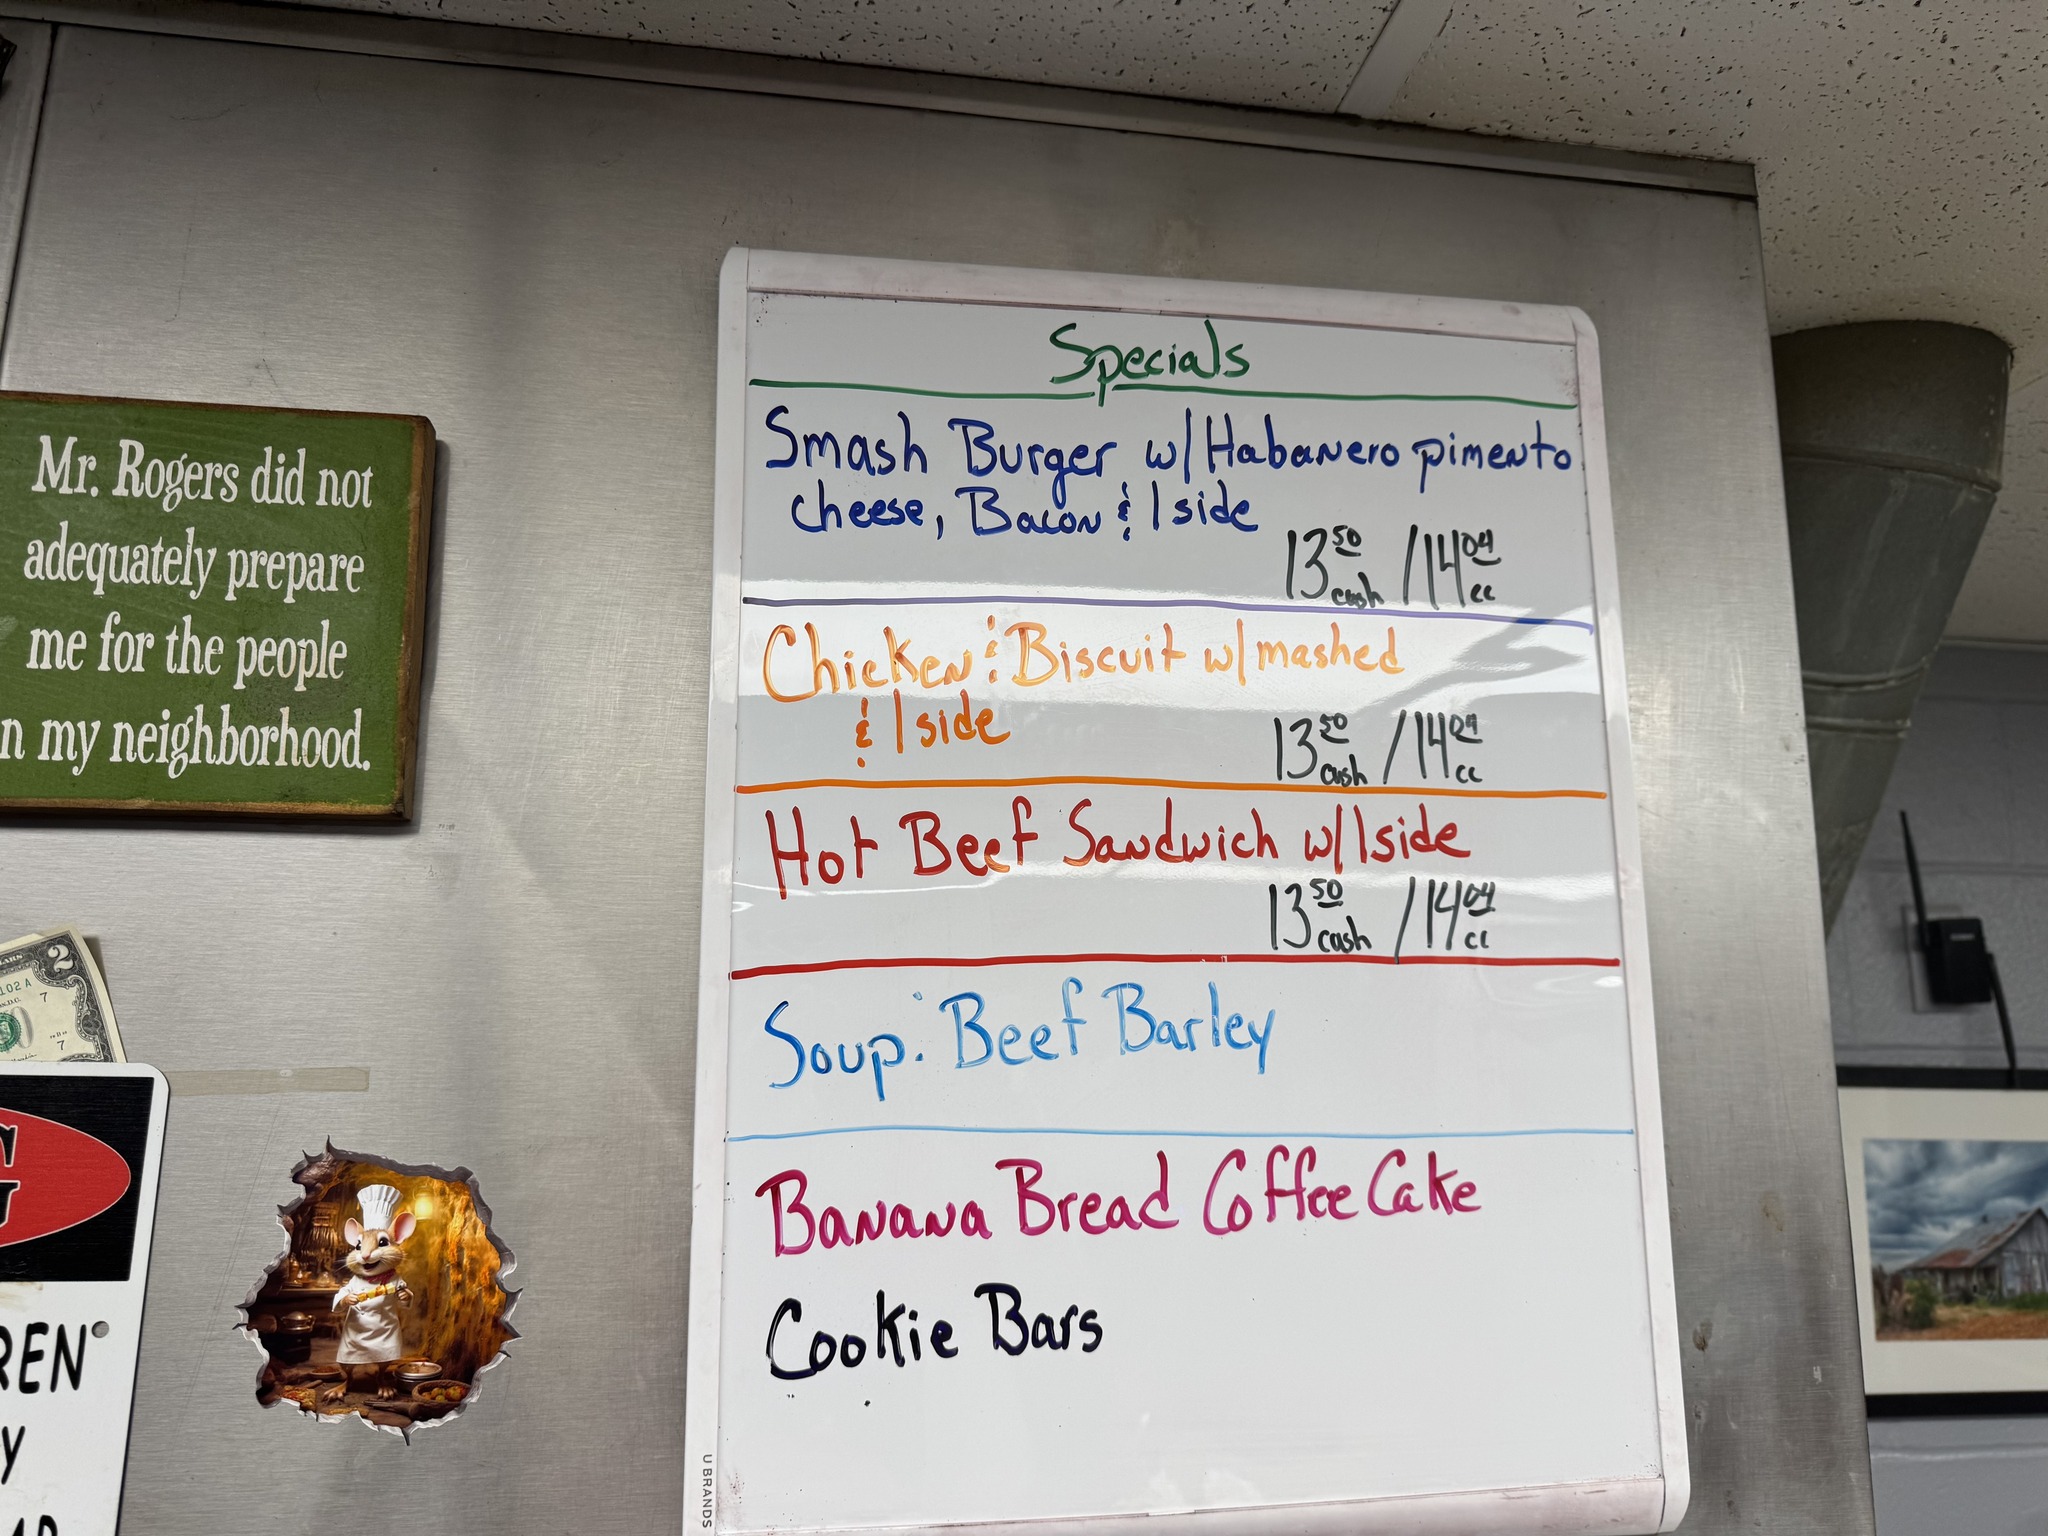 Specials
Smash Burger w/ Habanero pimento
cheese, Bacon & 1 side
13 50 cash / 14 04 cc
Chicken & Biscuit w/ mashed
& 1 side
13 50 cash / 14 04 cc
Hot Beef Sandwich w/ 1 side
13 50 cash / 14 04 cc
Soup: Beef Barley
Banana Bread Coffee Cake
Cookie Bars
U BRANDS
Mr. Rogers did not
adequately prepare
me for the people
n my neighborhood.
2
102 A
7
7
G
REN
Y